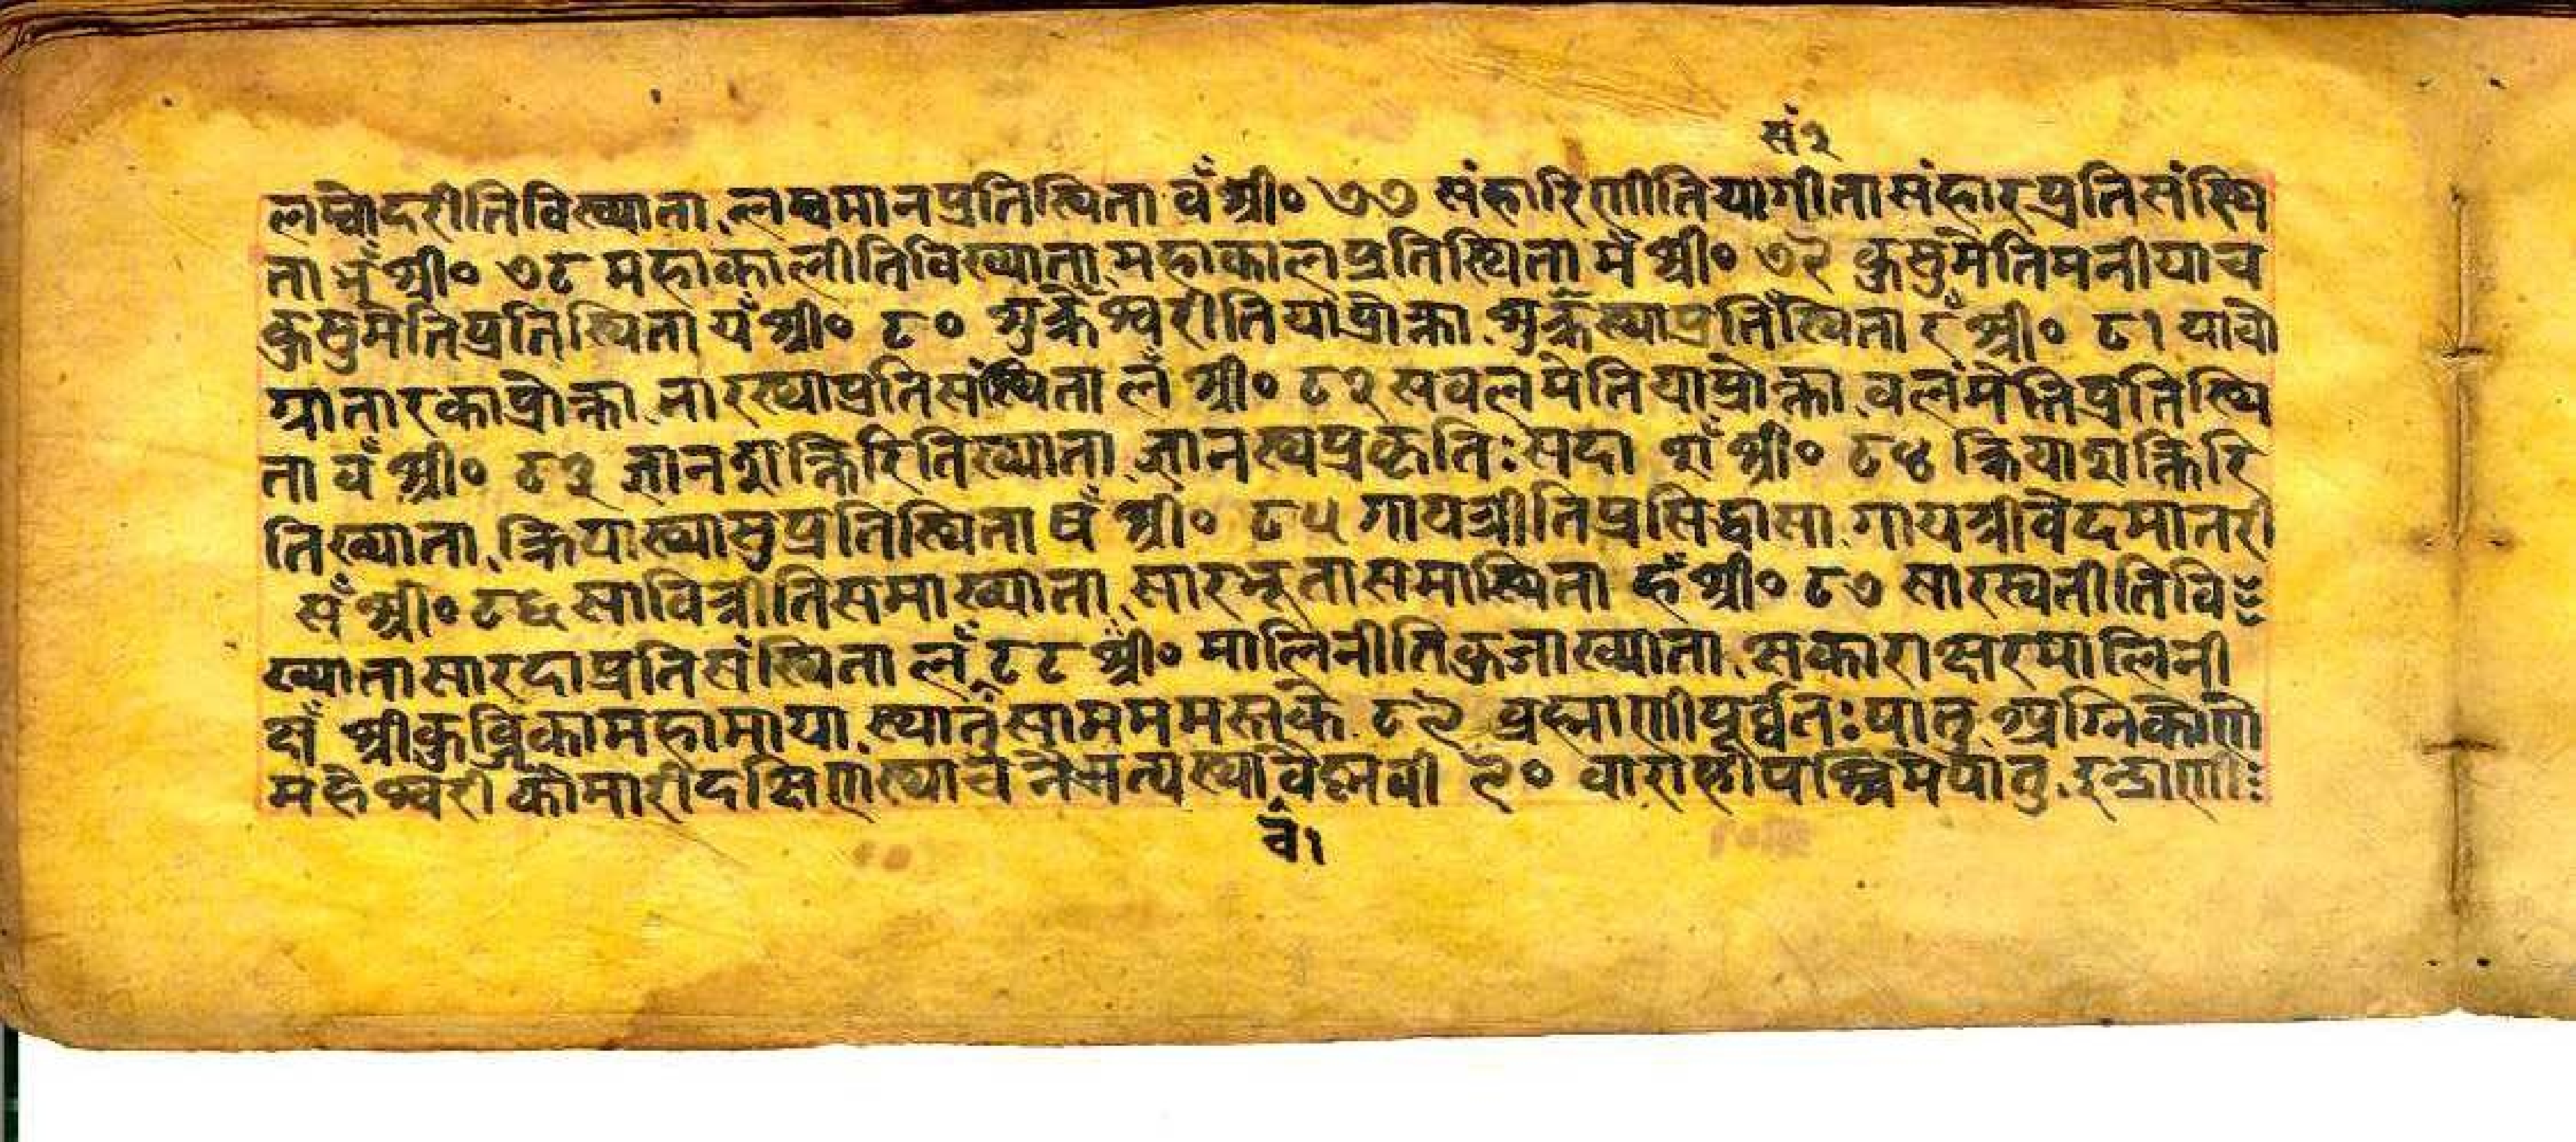 सं २
लम्बोदरीतिविख्याता लम्बमानप्रतिस्थिता वँ श्री० ७७ संहारिणीतियागीता संहारप्रतिसंस्थि
ता भँ श्री० ७८ महाकालीतिविख्याता महाकालप्रतिस्थिता मँ श्री० ७९ कुसुमेतिमनीयाच
कुसुमेतिप्रतिस्थिता यँ श्री० ८० शुक्रेश्वरीतियाप्रोक्ता शुक्रख्याप्रतिस्थिता रँ श्री० ८१ याचो
ग्रातारकाप्रोक्ता तारख्याप्रतिसंस्थिता लँ श्री० ८२ सवलमेतियाप्रोक्ता वलंमेतिप्रतिस्थि
ता वँ श्री० ८३ ज्ञानशक्तिरितिख्याता ज्ञानख्यप्रकृतिः सदा शँ श्री० ८४ क्रियाशक्तिरि
तिख्याता क्रियाख्यासुप्रतिस्थिता षँ श्री० ८५ गायत्रीतिप्रसिद्धासा गायत्रीवेदमातरी
सँ श्री० ८६ सावित्रीतिसमाख्याता सारभूतासमास्थिता हँ श्री० ८७ सारस्वतीतिवि
ख्यातासारदाप्रतिसंस्थिता लँ ८८ श्री० मालिनीतिकुजाख्याता सकाराक्षरमालिनी
क्षँ श्रीकुब्जिकामहामाया ख्यातंसाममममस्तके ८९ ब्रह्माणीपूर्व्वतः पातु अग्निकोणे
महेश्वरी कौमारीदक्षिणाख्याच नैऋत्यख्यावैष्णवी ९० वाराहीपश्चिमेपातु इन्द्राणी
वे १